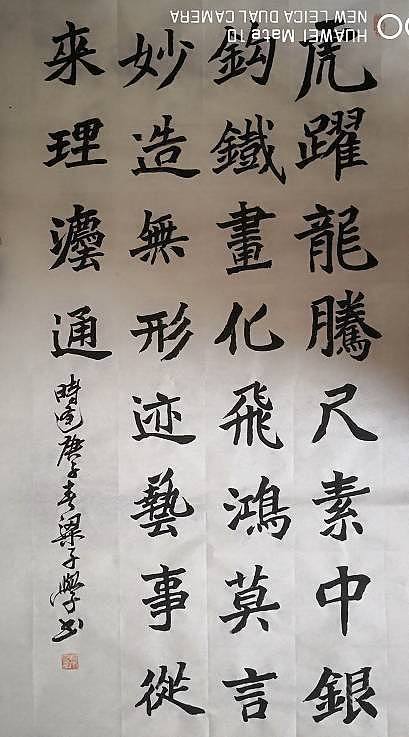 虎躍龍騰尺素中銀
鈎鐵畫化飛鴻莫言
妙造無形迹藝事從
來理灋通
時庚子春梁子學書
HUAWEI Mate 10
NEW LEICA DUAL CAMERA